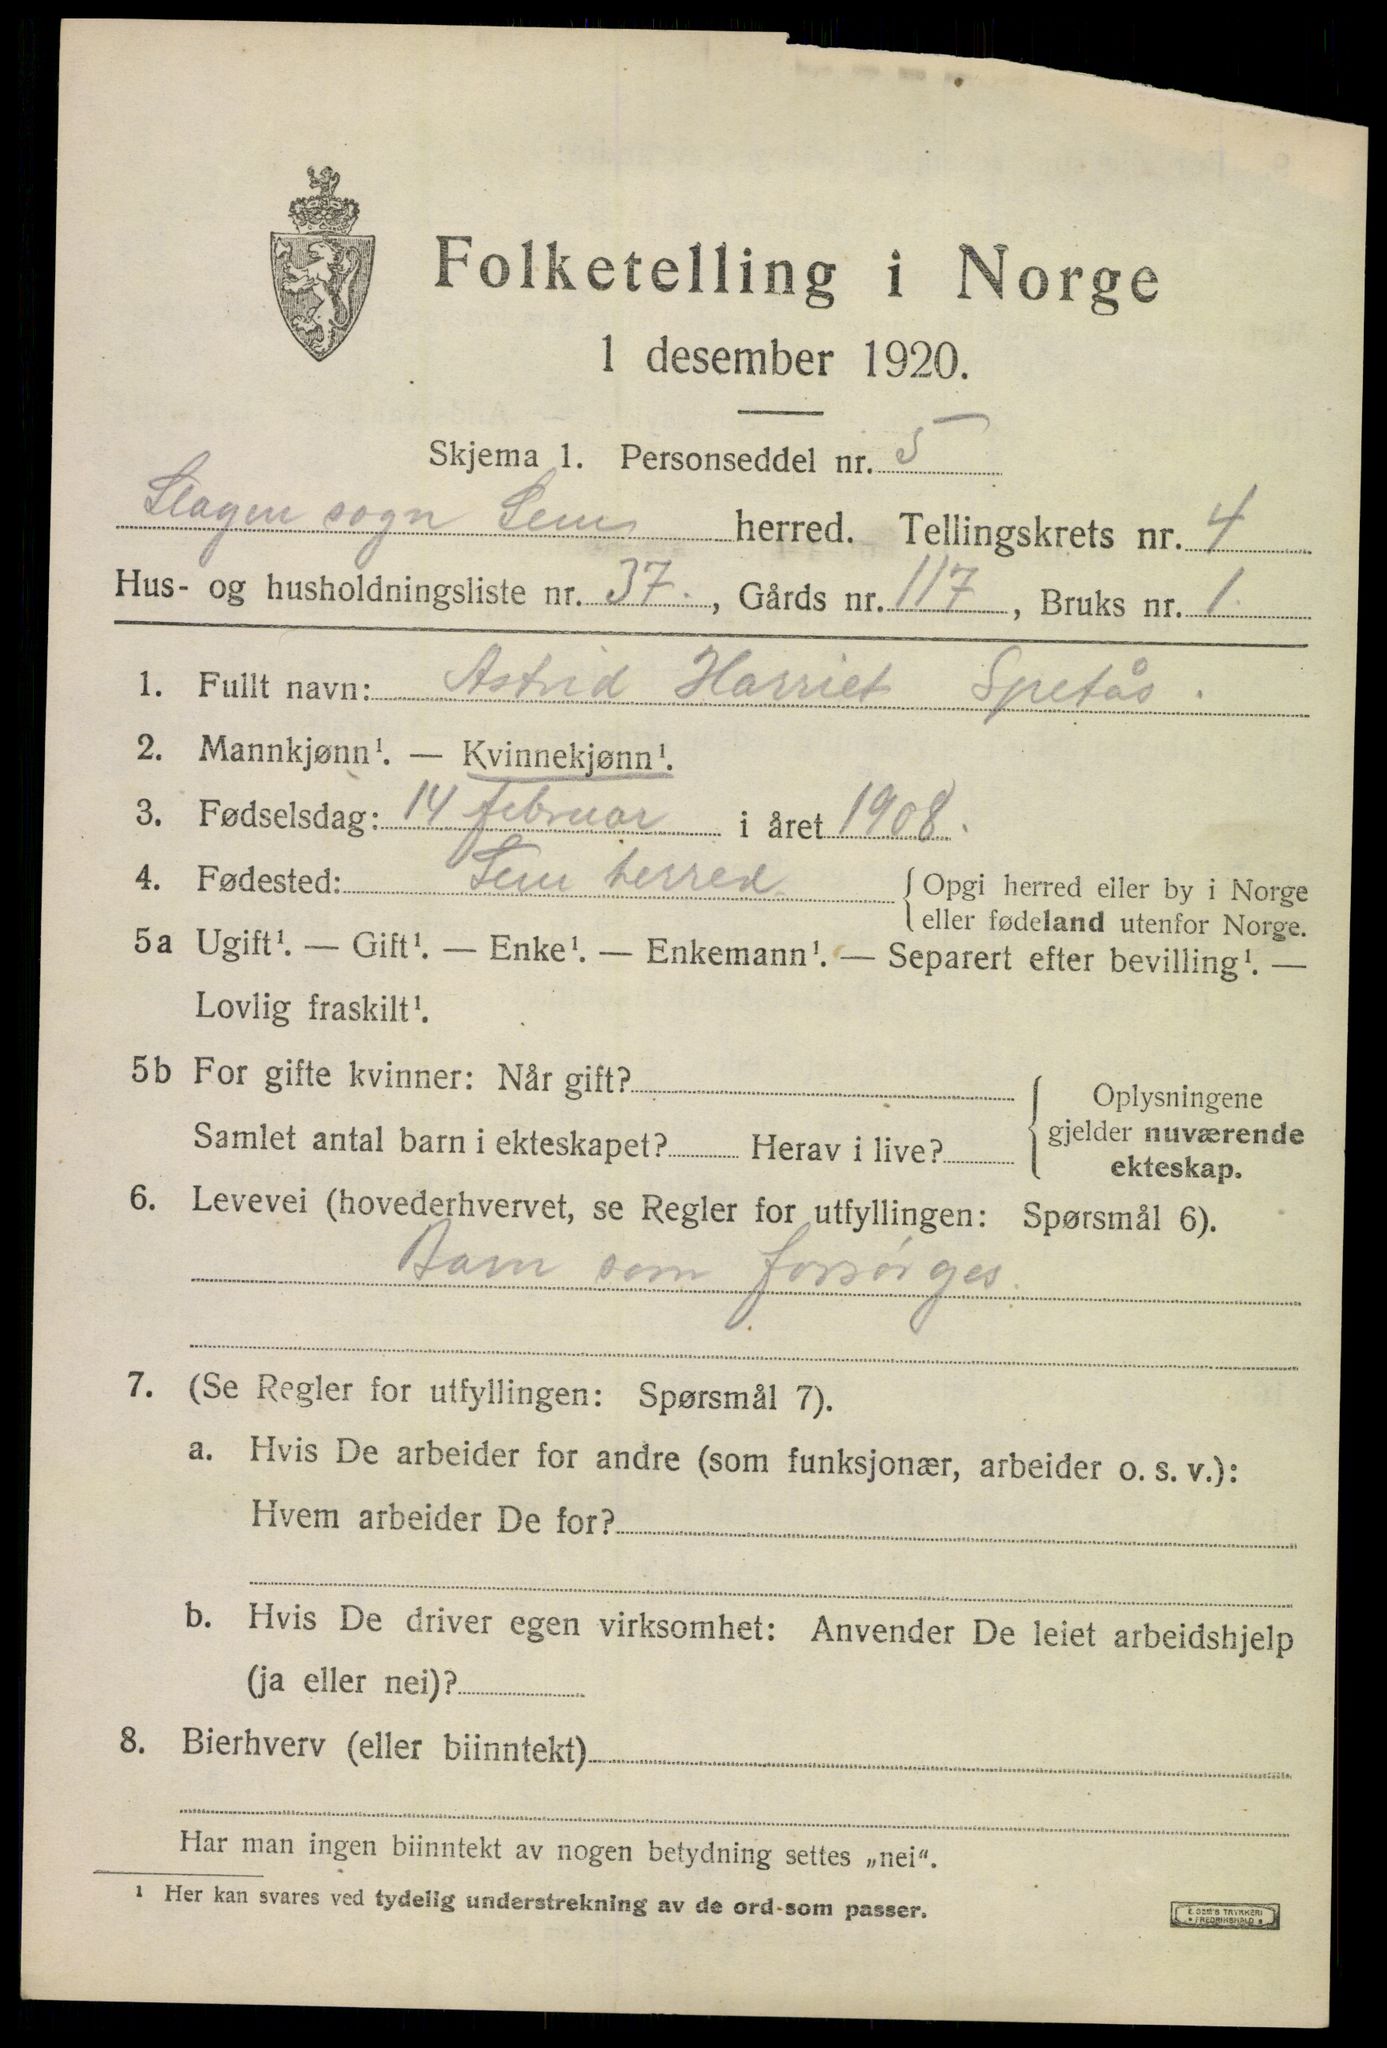 Folketelling i Norge
1 desember 1920.
Skjema 1. Personseddel nr. 5
Slagen sogn Sem herred. Tellingskrets nr. 4
Hus- og husholdningsliste nr. 37., Gårds nr. 117, Bruks nr. 1.
1. Fullt navn: Astrid Harriet Spetås.
2. Mannkjønn¹. — Kvinnekjønn¹.
3. Fødselsdag: 14 februar i året 1908.
4. Fødested: Sem herred. { Opgi herred eller by i Norge
eller fødeland utenfor Norge.
5a Ugift¹. — Gift¹. — Enke¹. — Enkemann¹. — Separert efter bevilling¹. —
Lovlig fraskilt¹.
5b For gifte kvinner: Når gift?
Samlet antal barn i ekteskapet? Herav i live?
Oplysningene
gjelder nuværende
ekteskap.
6. Levevei (hovederhvervet, se Regler for utfyllingen: Spørsmål 6).
Barn som forsørges.
7. (Se Regler for utfyllingen: Spørsmål 7).
a. Hvis De arbeider for andre (som funksjonær, arbeider o. s. v.):
Hvem arbeider De for?
b. Hvis De driver egen virksomhet: Anvender De leiet arbeidshjelp
(ja eller nei)?
8. Bierhverv (eller biinntekt)
Har man ingen biinntekt av nogen betydning settes „nei“.
¹ Her kan svares ved tydelig understrekning av de ord som passer.
E. SEM'S TRYKKERI
FREDRIKSHALD